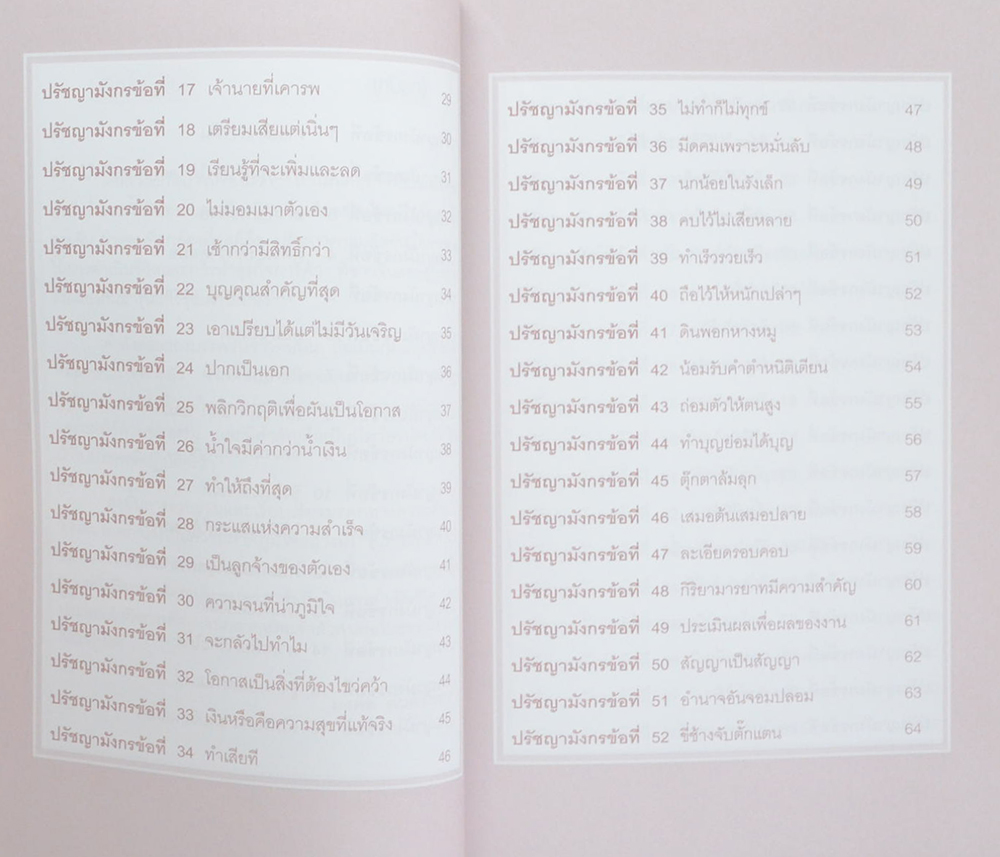 ปรัชญามังกรข้อที่ 17 เจ้านายที่เคารพ 29
ปรัชญามังกรข้อที่ 18 เตรียมเสียแต่เนิ่นๆ 30
ปรัชญามังกรข้อที่ 19 เรียนรู้ที่จะเพิ่มและลด 31
ปรัชญามังกรข้อที่ 20 ไม่มอมเมาตัวเอง 32
ปรัชญามังกรข้อที่ 21 เช้ากว่ามีสิทธิ์กว่า 33
ปรัชญามังกรข้อที่ 22 บุญคุณสำคัญที่สุด 34
ปรัชญามังกรข้อที่ 23 เอาเปรียบได้แต่ไม่มีวันเจริญ 35
ปรัชญามังกรข้อที่ 24 ปากเป็นเอก 36
ปรัชญามังกรข้อที่ 25 พลิกวิกฤติเพื่อผันเป็นโอกาส 37
ปรัชญามังกรข้อที่ 26 น้ำใจมีค่ากว่าน้ำเงิน 38
ปรัชญามังกรข้อที่ 27 ทำให้ถึงที่สุด 39
ปรัชญามังกรข้อที่ 28 กระแสแห่งความสำเร็จ 40
ปรัชญามังกรข้อที่ 29 เป็นลูกจ้างของตัวเอง 41
ปรัชญามังกรข้อที่ 30 ความจนที่น่าภูมิใจ 42
ปรัชญามังกรข้อที่ 31 จะกลัวไปทำไม 43
ปรัชญามังกรข้อที่ 32 โอกาสเป็นสิ่งที่ต้องไขว่คว้า 44
ปรัชญามังกรข้อที่ 33 เงินหรือคือความสุขที่แท้จริง 45
ปรัชญามังกรข้อที่ 34 ทำเสียที 46
ปรัชญามังกรข้อที่ 35 ไม่ทำก็ไม่ทุกข์ 47
ปรัชญามังกรข้อที่ 36 มีดคมเพราะหมั่นลับ 48
ปรัชญามังกรข้อที่ 37 นกน้อยในรังเล็ก 49
ปรัชญามังกรข้อที่ 38 คบไว้ไม่เสียหลาย 50
ปรัชญามังกรข้อที่ 39 ทำเร็วรวยเร็ว 51
ปรัชญามังกรข้อที่ 40 ถือไว้ให้หนักเปล่าๆ 52
ปรัชญามังกรข้อที่ 41 ดินพอกหางหมู 53
ปรัชญามังกรข้อที่ 42 น้อมรับคำตำหนิติเตียน 54
ปรัชญามังกรข้อที่ 43 ถ่อมตัวให้ตนสูง 55
ปรัชญามังกรข้อที่ 44 ทำบุญย่อมได้บุญ 56
ปรัชญามังกรข้อที่ 45 ตุ๊กตาล้มลุก 57
ปรัชญามังกรข้อที่ 46 เสมอต้นเสมอปลาย 58
ปรัชญามังกรข้อที่ 47 ละเอียดรอบคอบ 59
ปรัชญามังกรข้อที่ 48 กิริยามารยาทมีความสำคัญ 60
ปรัชญามังกรข้อที่ 49 ประเมินผลเพื่อผลของงาน 61
ปรัชญามังกรข้อที่ 50 สัญญาเป็นสัญญา 62
ปรัชญามังกรข้อที่ 51 อำนาจอันจอมปลอม 63
ปรัชญามังกรข้อที่ 52 ขี่ช้างจับตั๊กแตน 64